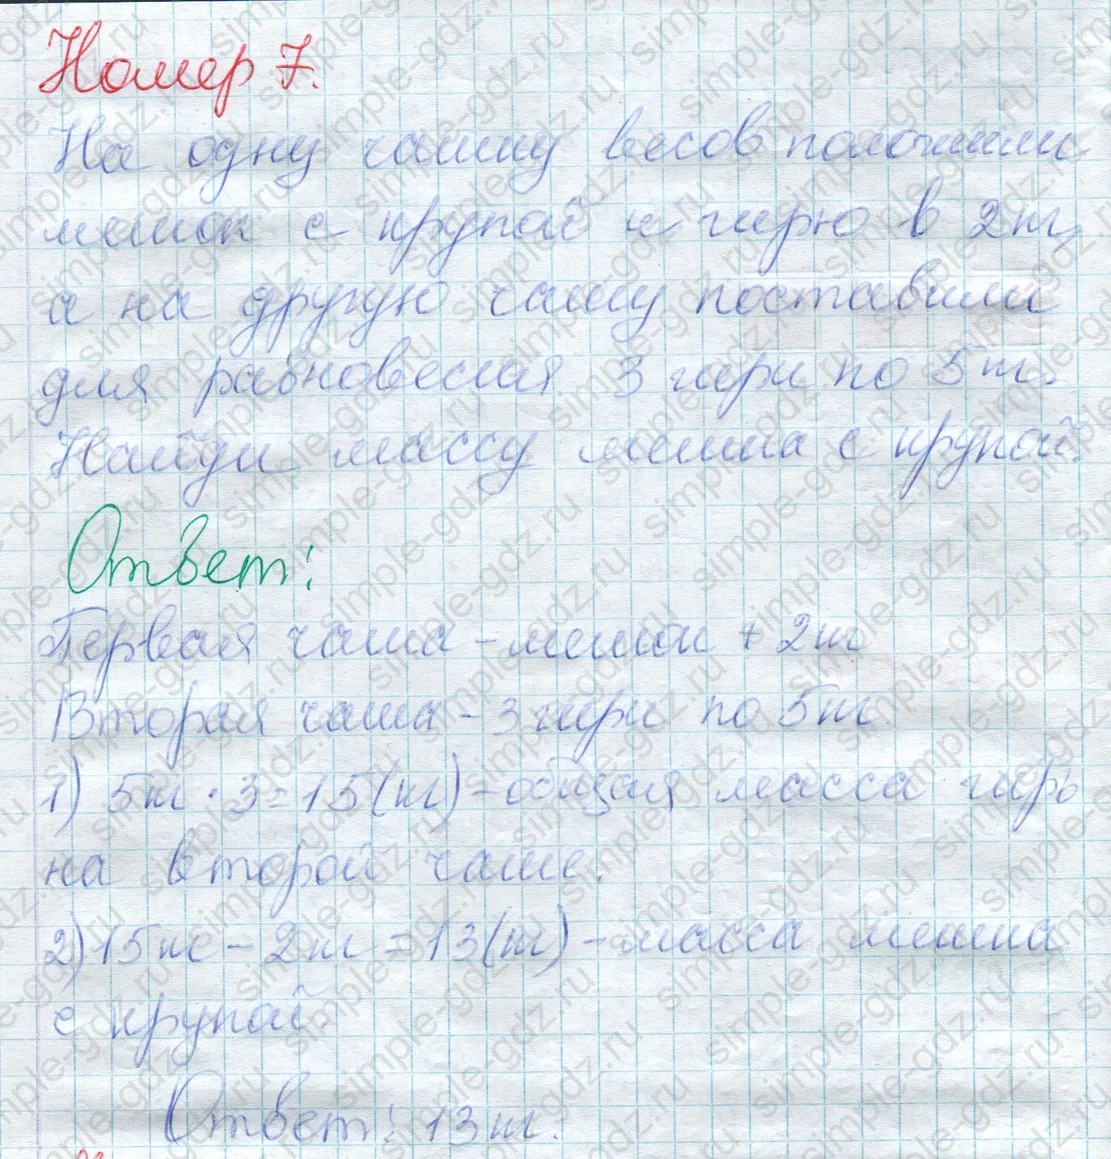 Номер 7.
На одну чашку весов положили
мешок с крупой и гирю в 2т,
а на другую чашу поставили
для равновесия 3 гири по 5т.
Найди массу мешка с крупой.
Ответ:
Первая чаша - мешок + 2т
Вторая чаша - 3 гири по 5т
1) 5т · 3 = 15(т) - общая масса гирь
на второй чаше.
2) 15т - 2т = 13(т) - масса мешка
с крупой.
Ответ: 13т.
simple-gdz.ru